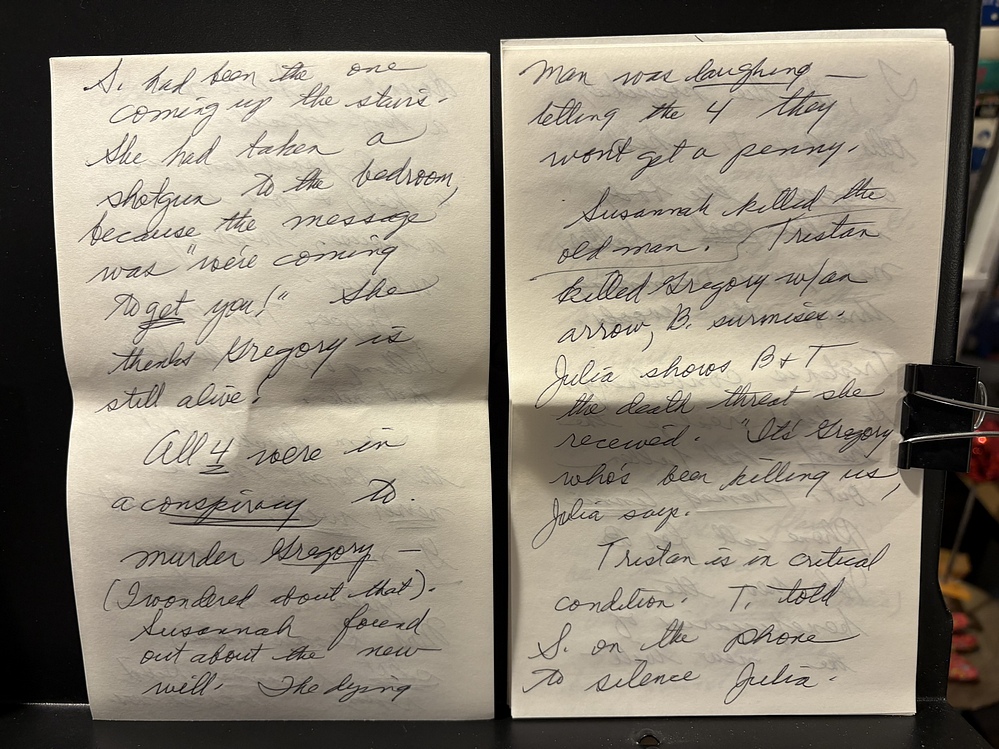 S. had been the one
coming up the stairs.
She had taken a
shotgun to the bedroom,
because the message
was "we're coming
to get you!" She
thinks Gregory is
still alive!
All 4 were in
a conspiracy to
murder Gregory —
(I wondered about that).
Susannah found
out about the new
will. The dying
man was laughing —
telling the 4 they
won't get a penny.
Susannah killed the
old man. Tristan
killed Gregory w/an
arrow, B. surmises.
Julia shows B + T
the death threat she
received. "It's Gregory
who's been killing us,
Julia says.
Tristan is in critical
condition. T. told
S. on the phone
to silence Julia.